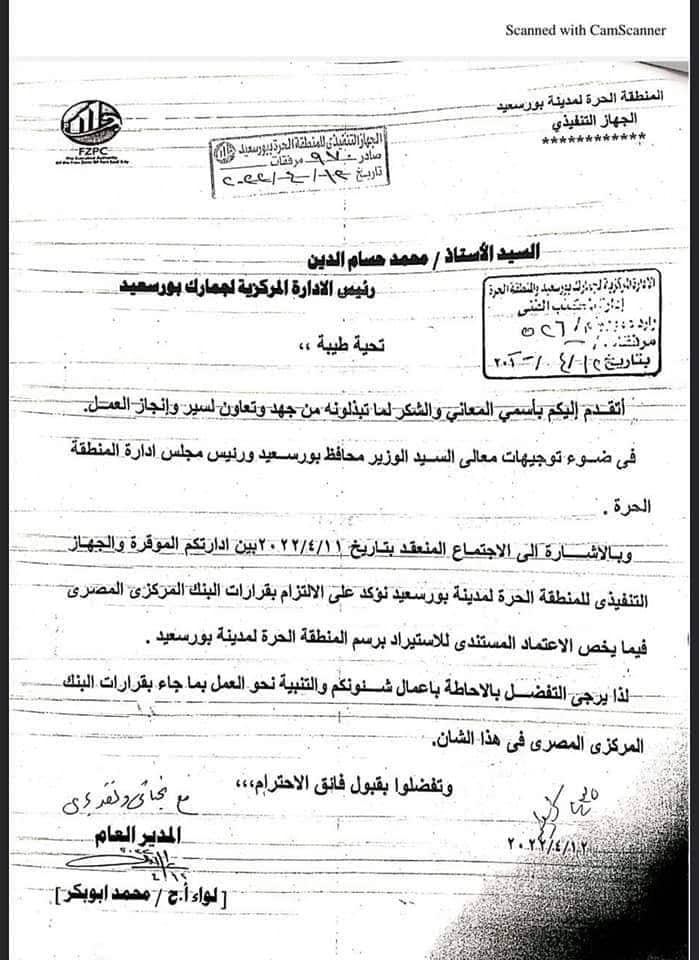 Scanned with CamScanner
المنطقة الحرة لمدينة بورسعيد
الجهاز التنفيذي
************
FZPC
The Executive Authority
Of the Free Zone Of Port Said City
الجهاز التنفيذي للمنطقة الحرة ببورسعيد
صادر ٩٧٠ مرفقات
تاريخ ١٢/٤/٢٠٢٢
السيد الأستاذ / محمد حسام الدين
رئيس الادارة المركزية لجمارك بورسعيد
الادارة المركزية لجمارك بورسعيد والمنطقة الحرة
إدارة المكتب الفنى
وارد
مرفقات
بتاريخ
تحية طيبة ،،
أتقدم إليكم بأسمي المعاني والشكر لما تبذلونه من جهد وتعاون لسير وإنجاز العمل.
فى ضوء توجيهات معالى السيد الوزير محافظ بورسعيد ورئيس مجلس ادارة المنطقة
الحرة .
وبالاشارة الى الاجتماع المنعقد بتاريخ ٢٠٢٢/٤/١١ بين ادارتكم الموقرة والجهاز
التنفيذى للمنطقة الحرة لمدينة بورسعيد نؤكد على الالتزام بقرارات البنك المركزى المصرى
فيما يخص الاعتماد المستندى للاستيراد برسم المنطقة الحرة لمدينة بورسعيد .
لذا يرجى التفضل بالاحاطة باعمال شئونكم والتنبية نحو العمل بما جاء بقرارات البنك
المركزى المصرى فى هذا الشان.
وتفضلوا بقبول فائق الاحترام،،،
مع تحياتي وتقديري
المدير العام
٢٠٢٢/٤/١٢
[ لواء أ.ح / محمد ابوبكر ]